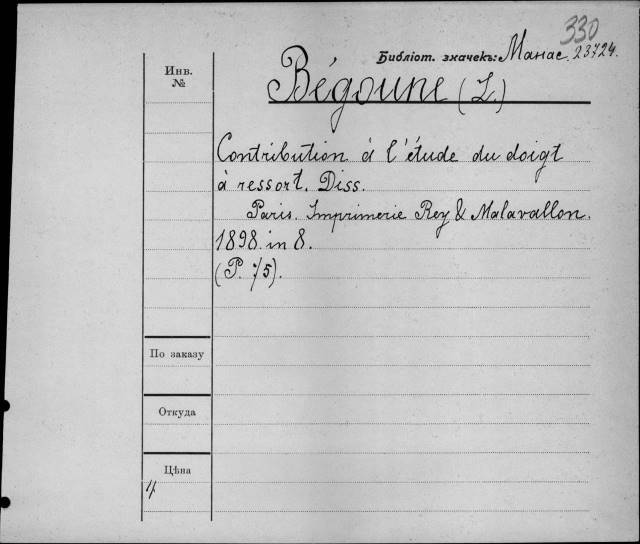 330
Библіот. значекъ: Манас. 23724.
Инв.
№
Bégoune (L.)
Contribution à l'étude du doigt
à ressort. Diss.
Paris. Imprimerie Rey & Malavallon.
1898. in 8.
(P. 75).
По заказу
Откуда
Цѣна
4